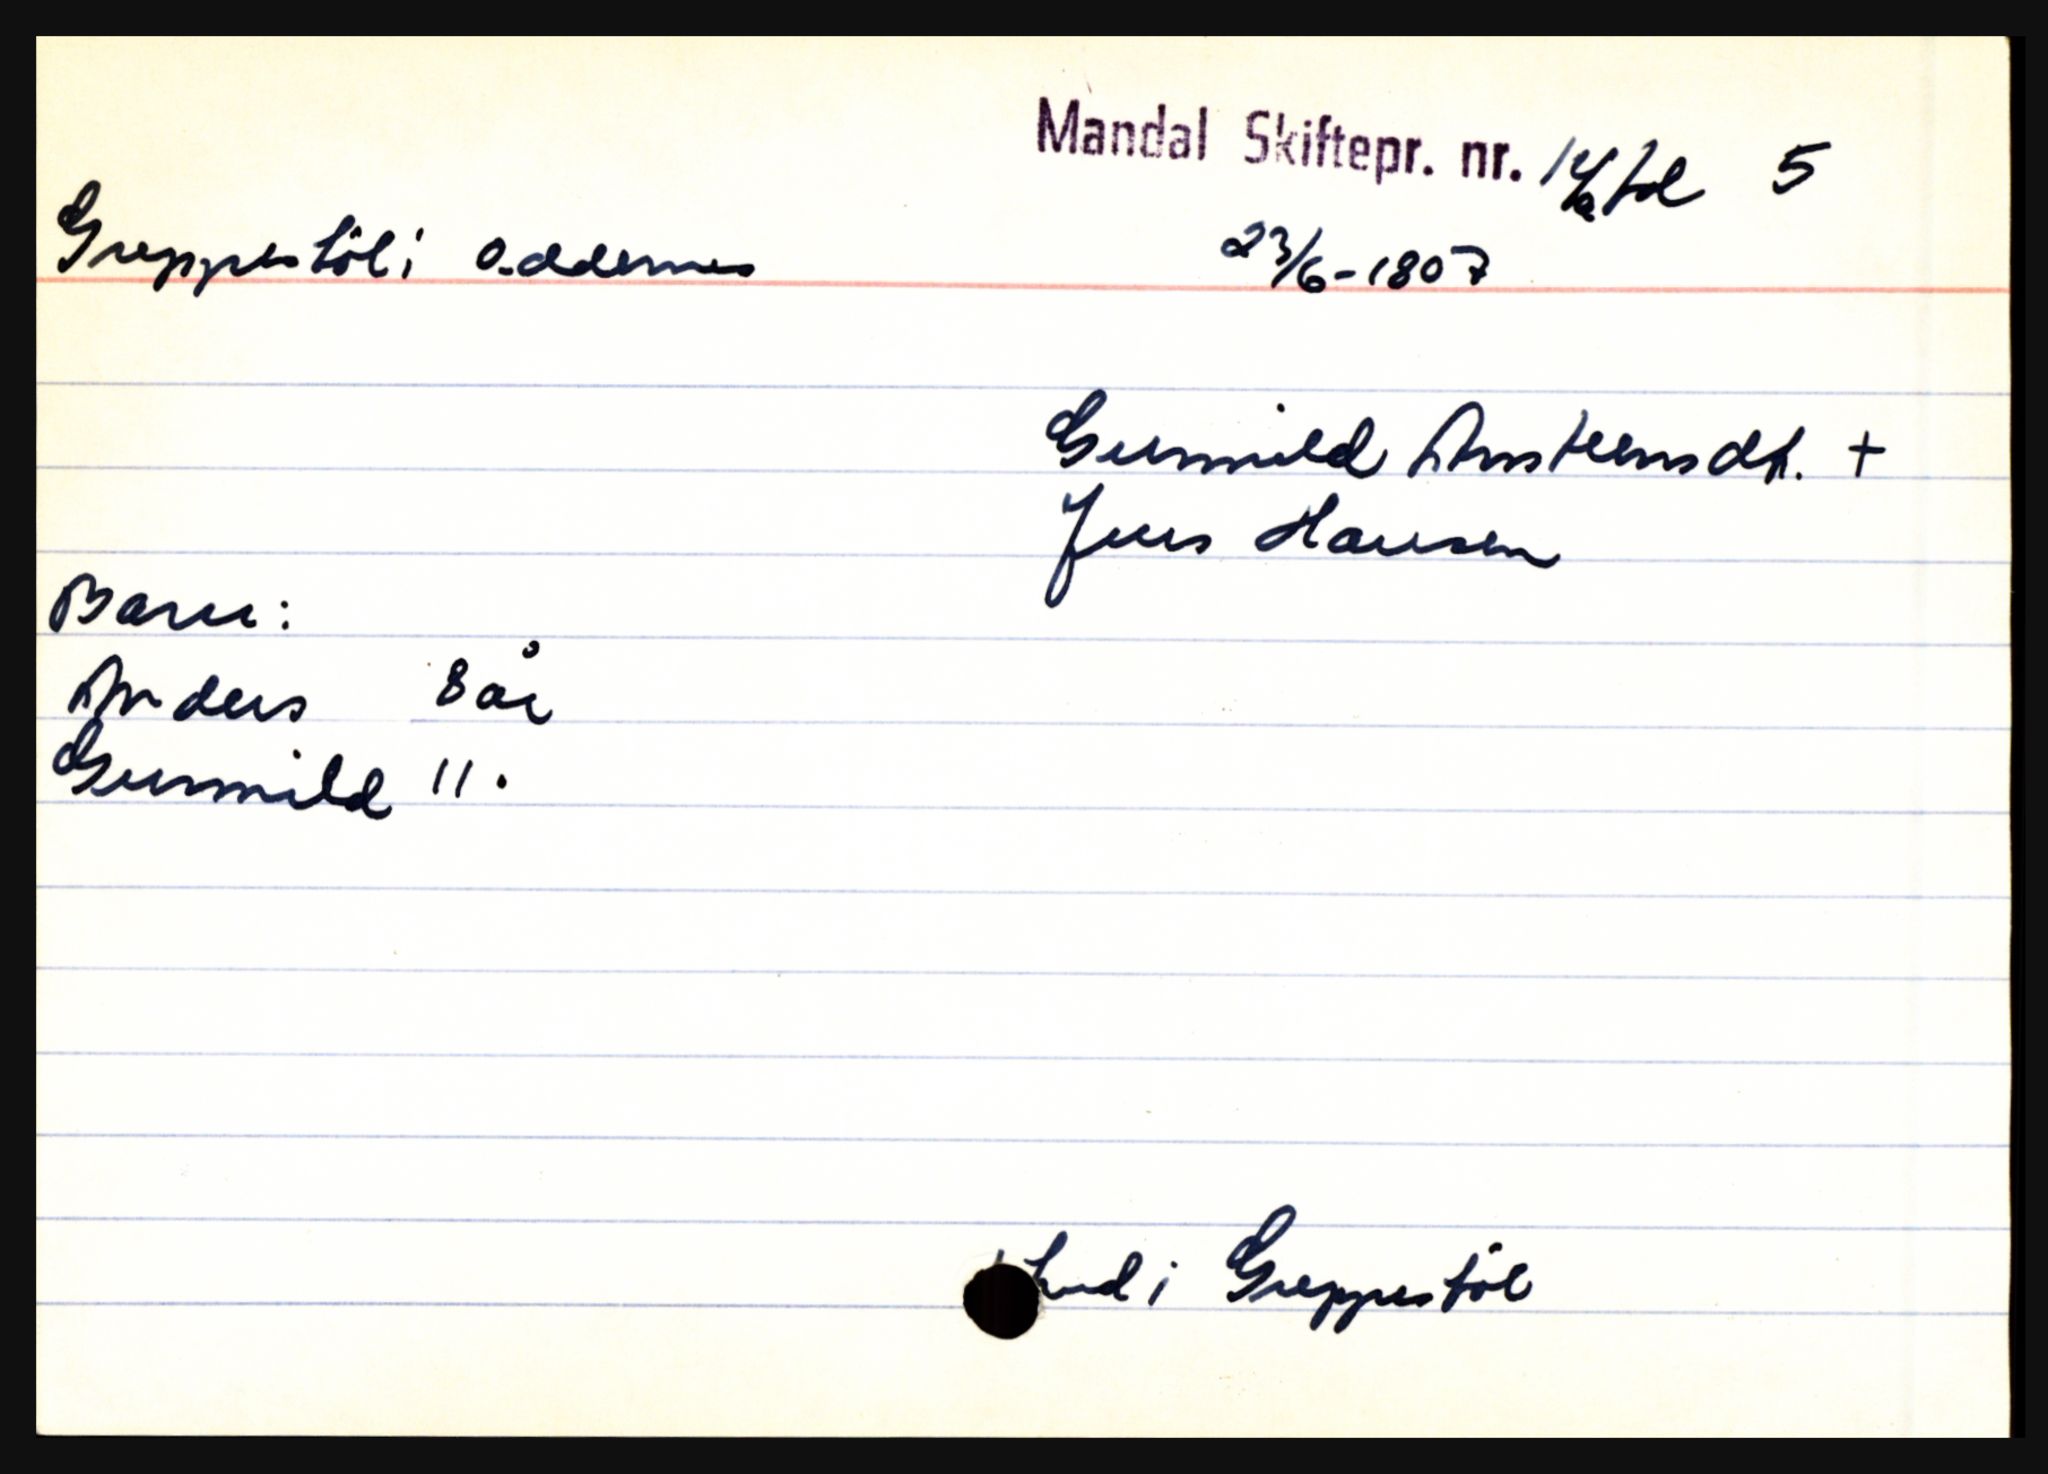 Mandal Skiftepr. nr. 14/a fol 5
Greppestöl i Oddernes 23/6-1807
Gunnild Anstensdt. +
Jens Hansen
Barn:
Anders 8 år
Gunnild 11 .
i Greppestöl